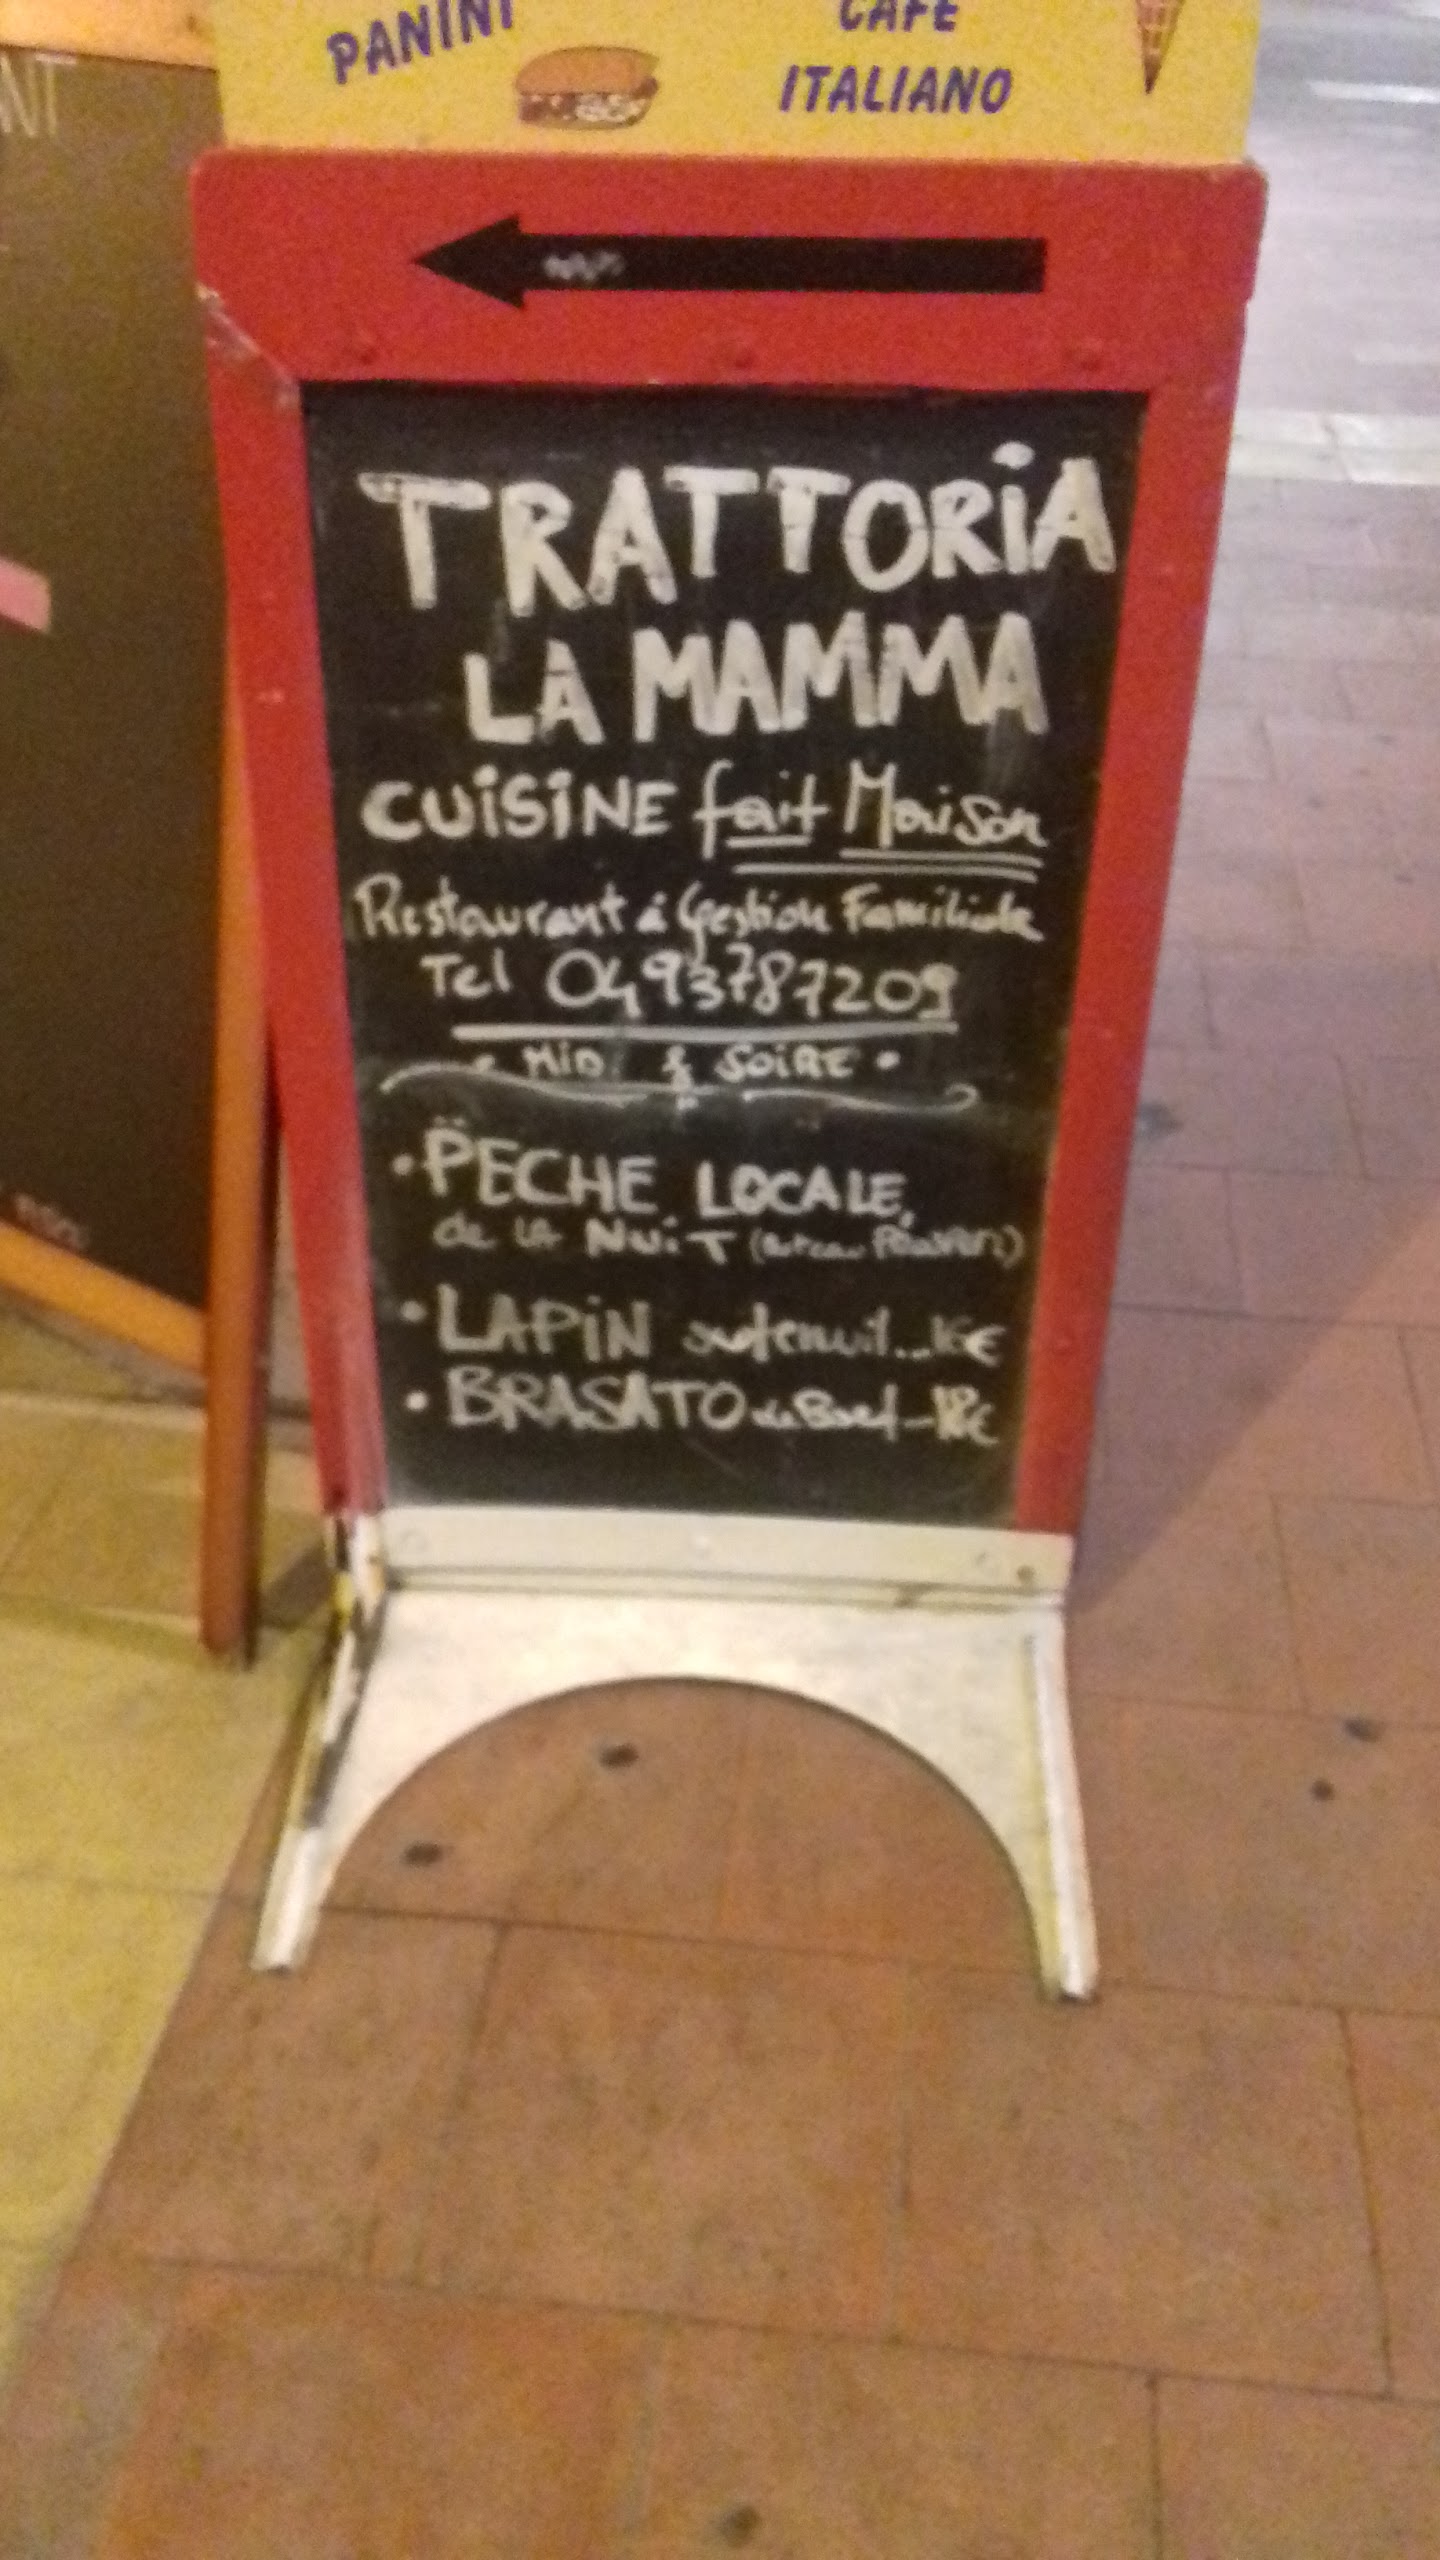 PANINI
CAFE
ITALIANO
TRATTORiA
LA MAMMA
CUiSiNE fait Maison
Restaurant à Gestion Familiale
Tel 0493787209
• MiD. & SOiRE •
• PECHE LOCALE,
de LA NUiT
• LAPiN
• BRASATO de Boeuf